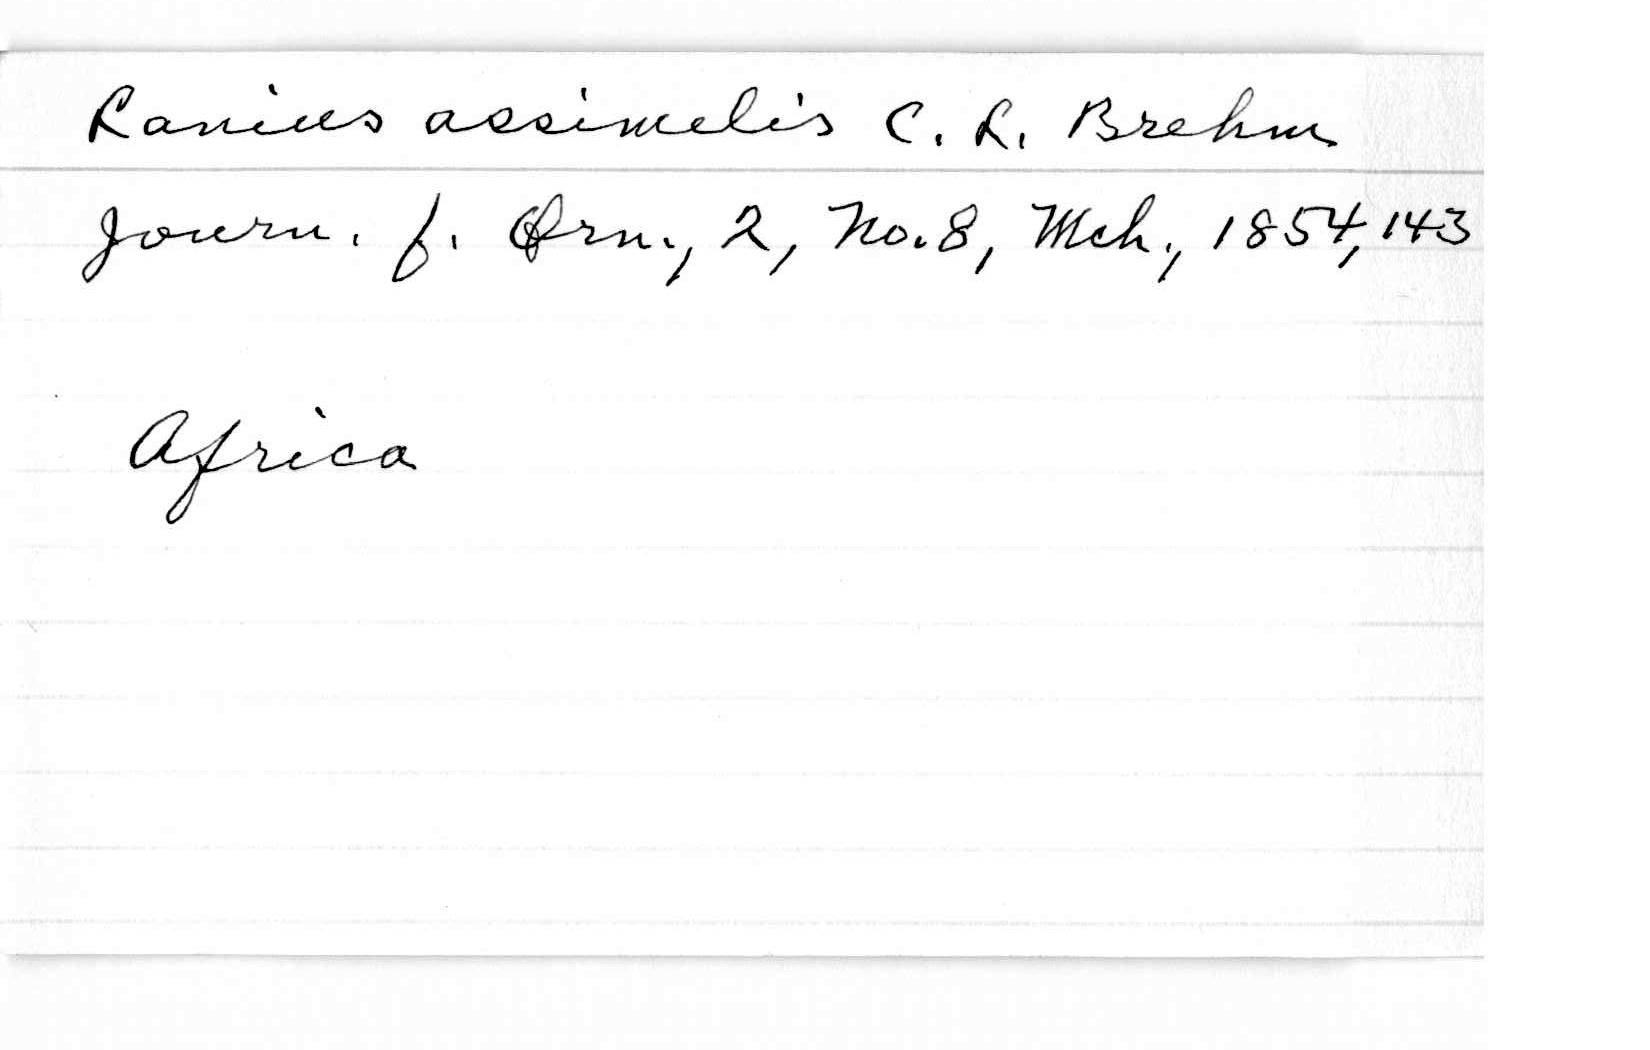 Lanius assimilis C. L. Brehm
Journ. f. Orn., 2, No. 8, Mch., 1854, 143
Africa